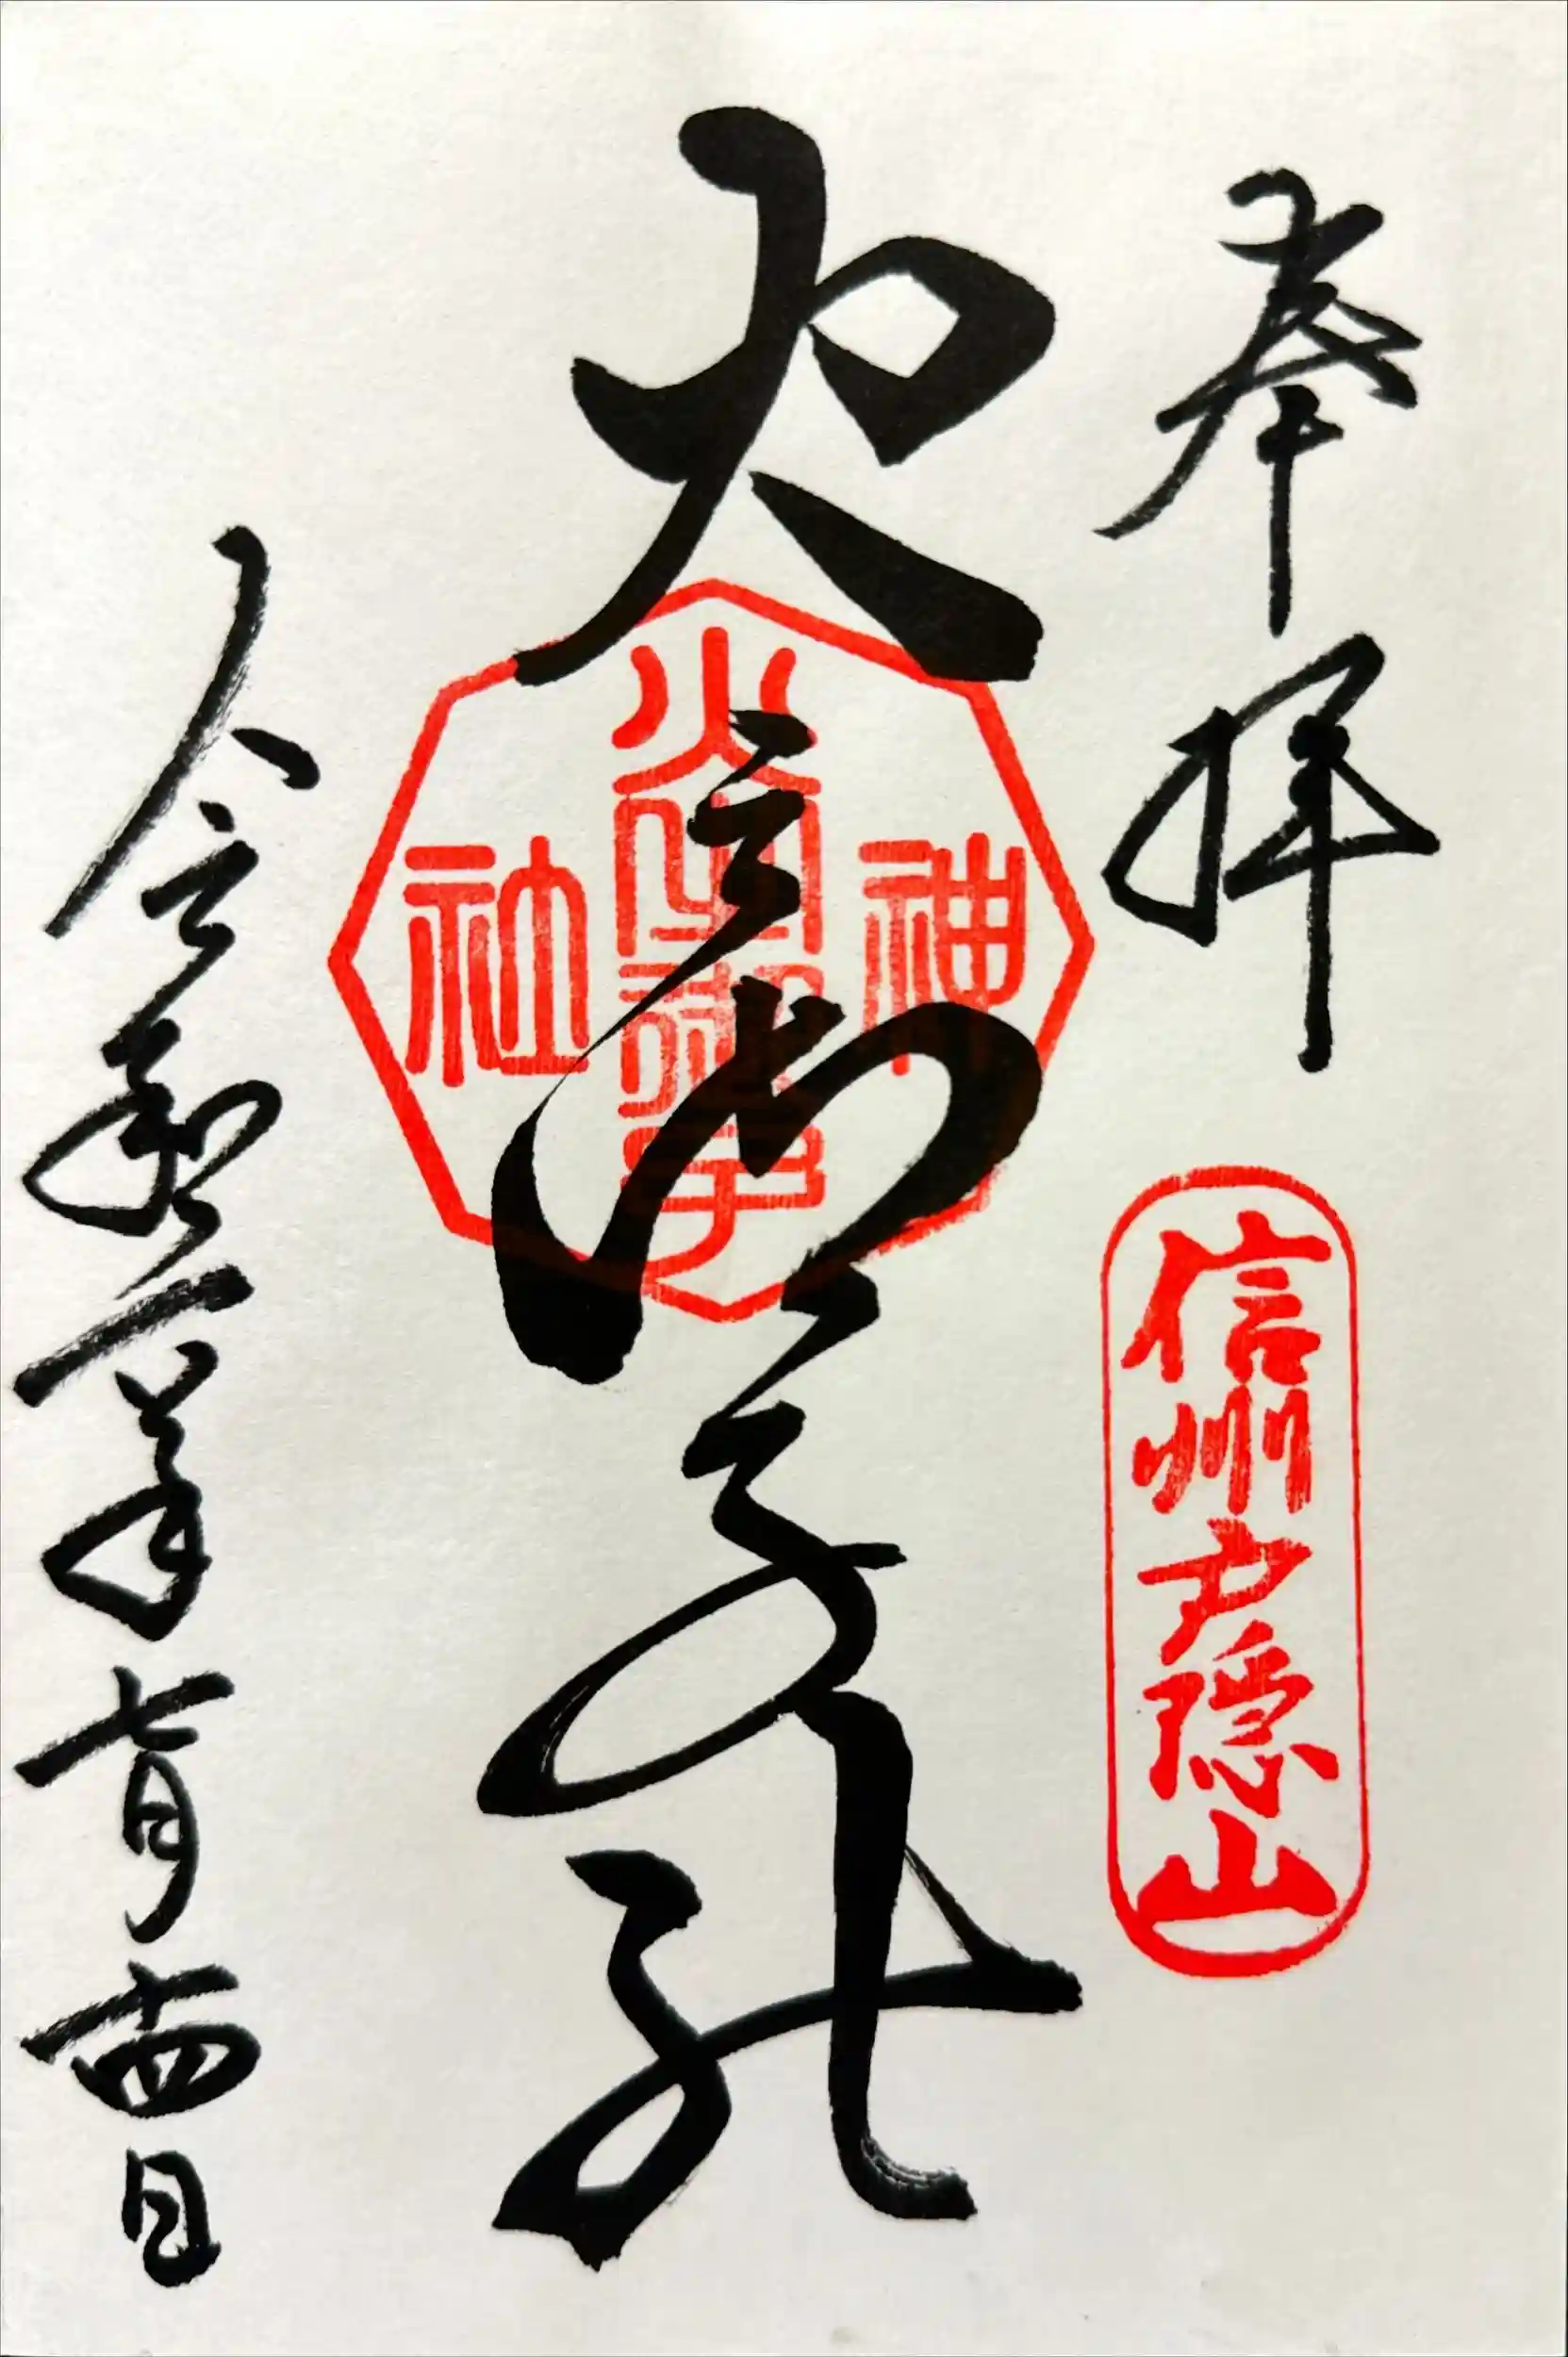 奉拝
信州戸隠山
火之御子社
神
火之御子
社
令和 年七月十四日